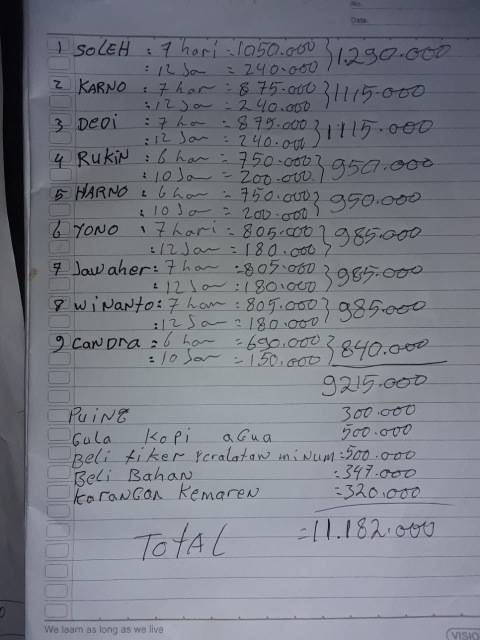 No.
Date.
1 SOLEH : 7 hari = 1050.000 } 1.290.000
: 12 Jam = 240.000
2 KARNO : 7 har = 875.000 } 1115.000
: 12 Jam = 240.000
3 DEDI : 7 ha = 875.000 } 1115.000
: 12 Jam = 240.000
4 RUKIN : 6 har = 750.000 } 950.000
: 10 Jam = 200.000
5 HARNO : 6 har = 750.000 } 950.000
: 10 Jam = 200.000
6 YONO : 7 hari = 805.000 } 985.000
: 12 Jam = 180.000
7 Jawaher : 7 har = 805.000 } 985.000
: 12 Jam = 180.000
8 WiNANTO : 7 har = 805.000 } 985.000
: 12 Jam = 180.000
9 CANDRA : 6 har = 690.000 } 840.000
: 10 Jam = 150.000
9215.000
PUING 300.000
Gula kopi aqua 500.000
Beli tiker Peralatan minum = 500.000
Beli Bahan = 347.000
Karangan Kemaren = 320.000
TOTAL = 11.182.000
We learn as long as we live
VISIO